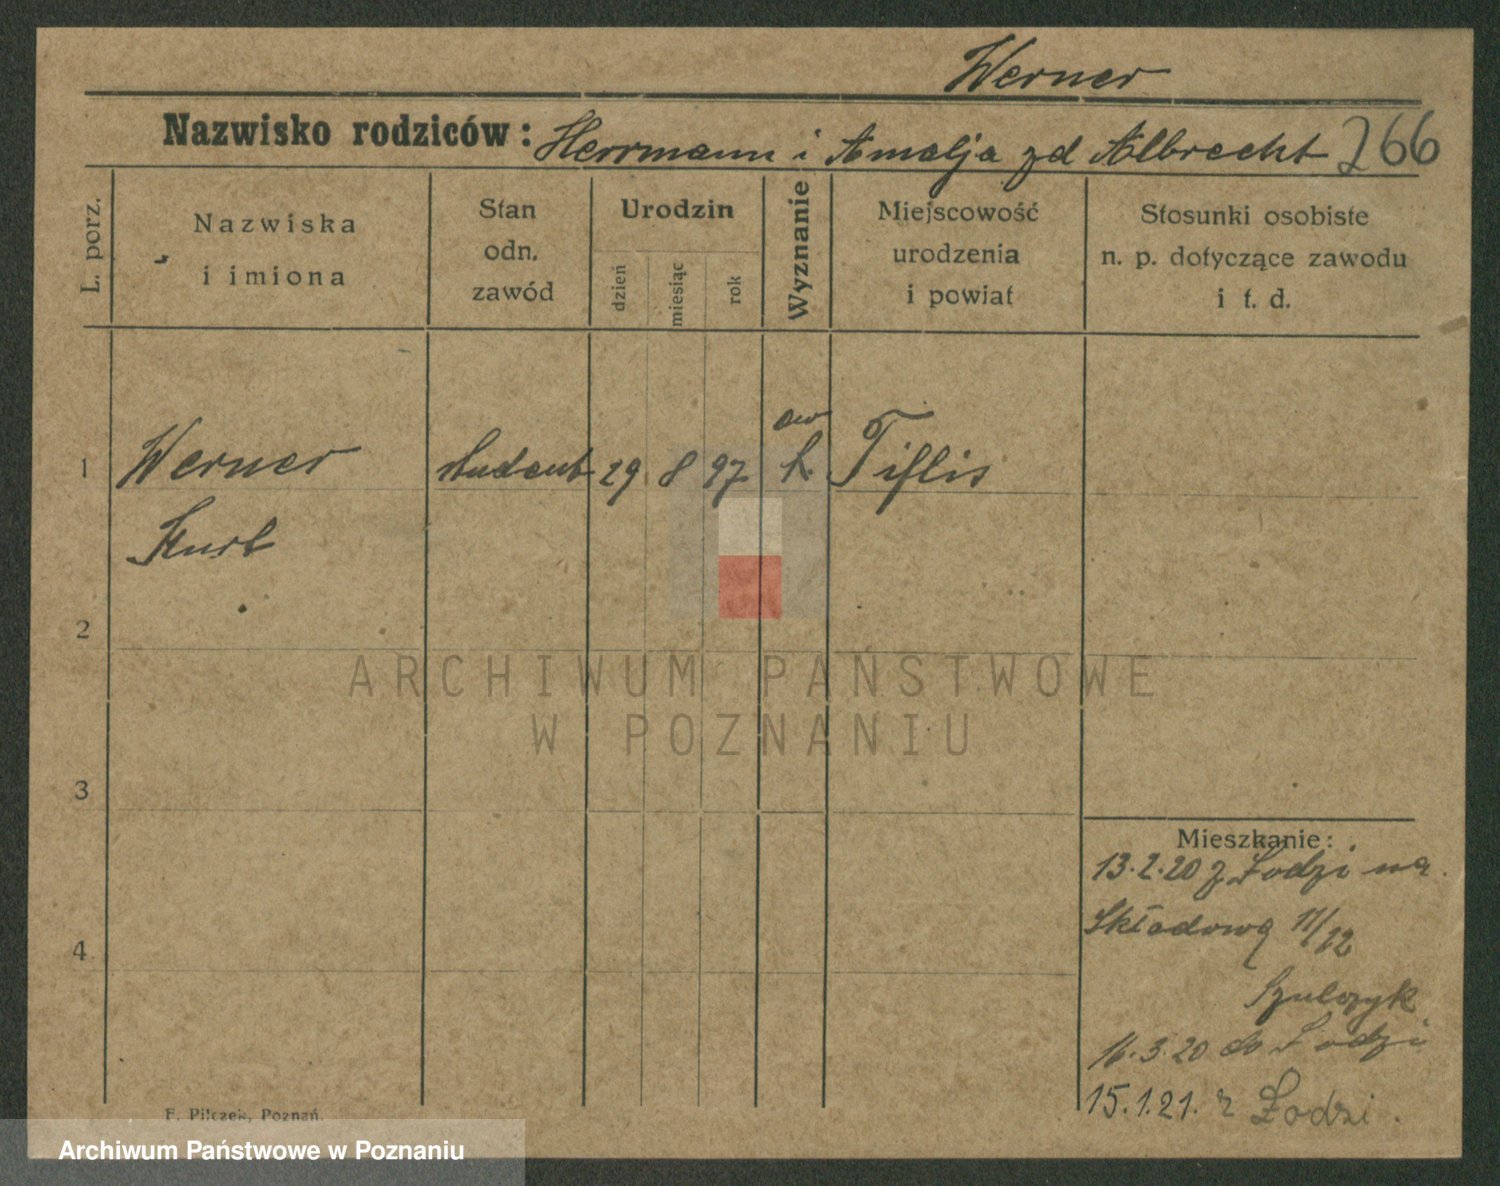 Werner
Nazwisko rodziców: Herrmann i Amalja zd Albrecht 266
L. porz.
Nazwiska
i imiona
Stan
odn.
zawód
Urodzin
dzień
miesiąc
rok
Wyznanie
Miejscowość
urodzenia
i powiat
Stosunki osobiste
n. p. dotyczące zawodu
i t. d.
ew
1 Werner student 29 8 97 k. Tiflis
Kurt
2
ARCHIWUM PAŃSTWOWE
W POZNANIU
3
Mieszkanie:
13.2.20 z Łodzi na
Składową 11/12
4
Szulczyk
16.3.20 do Łodzi
15.1.21. z Łodzi.
F. Pilczek, Poznań.
Archiwum Państwowe w Poznaniu